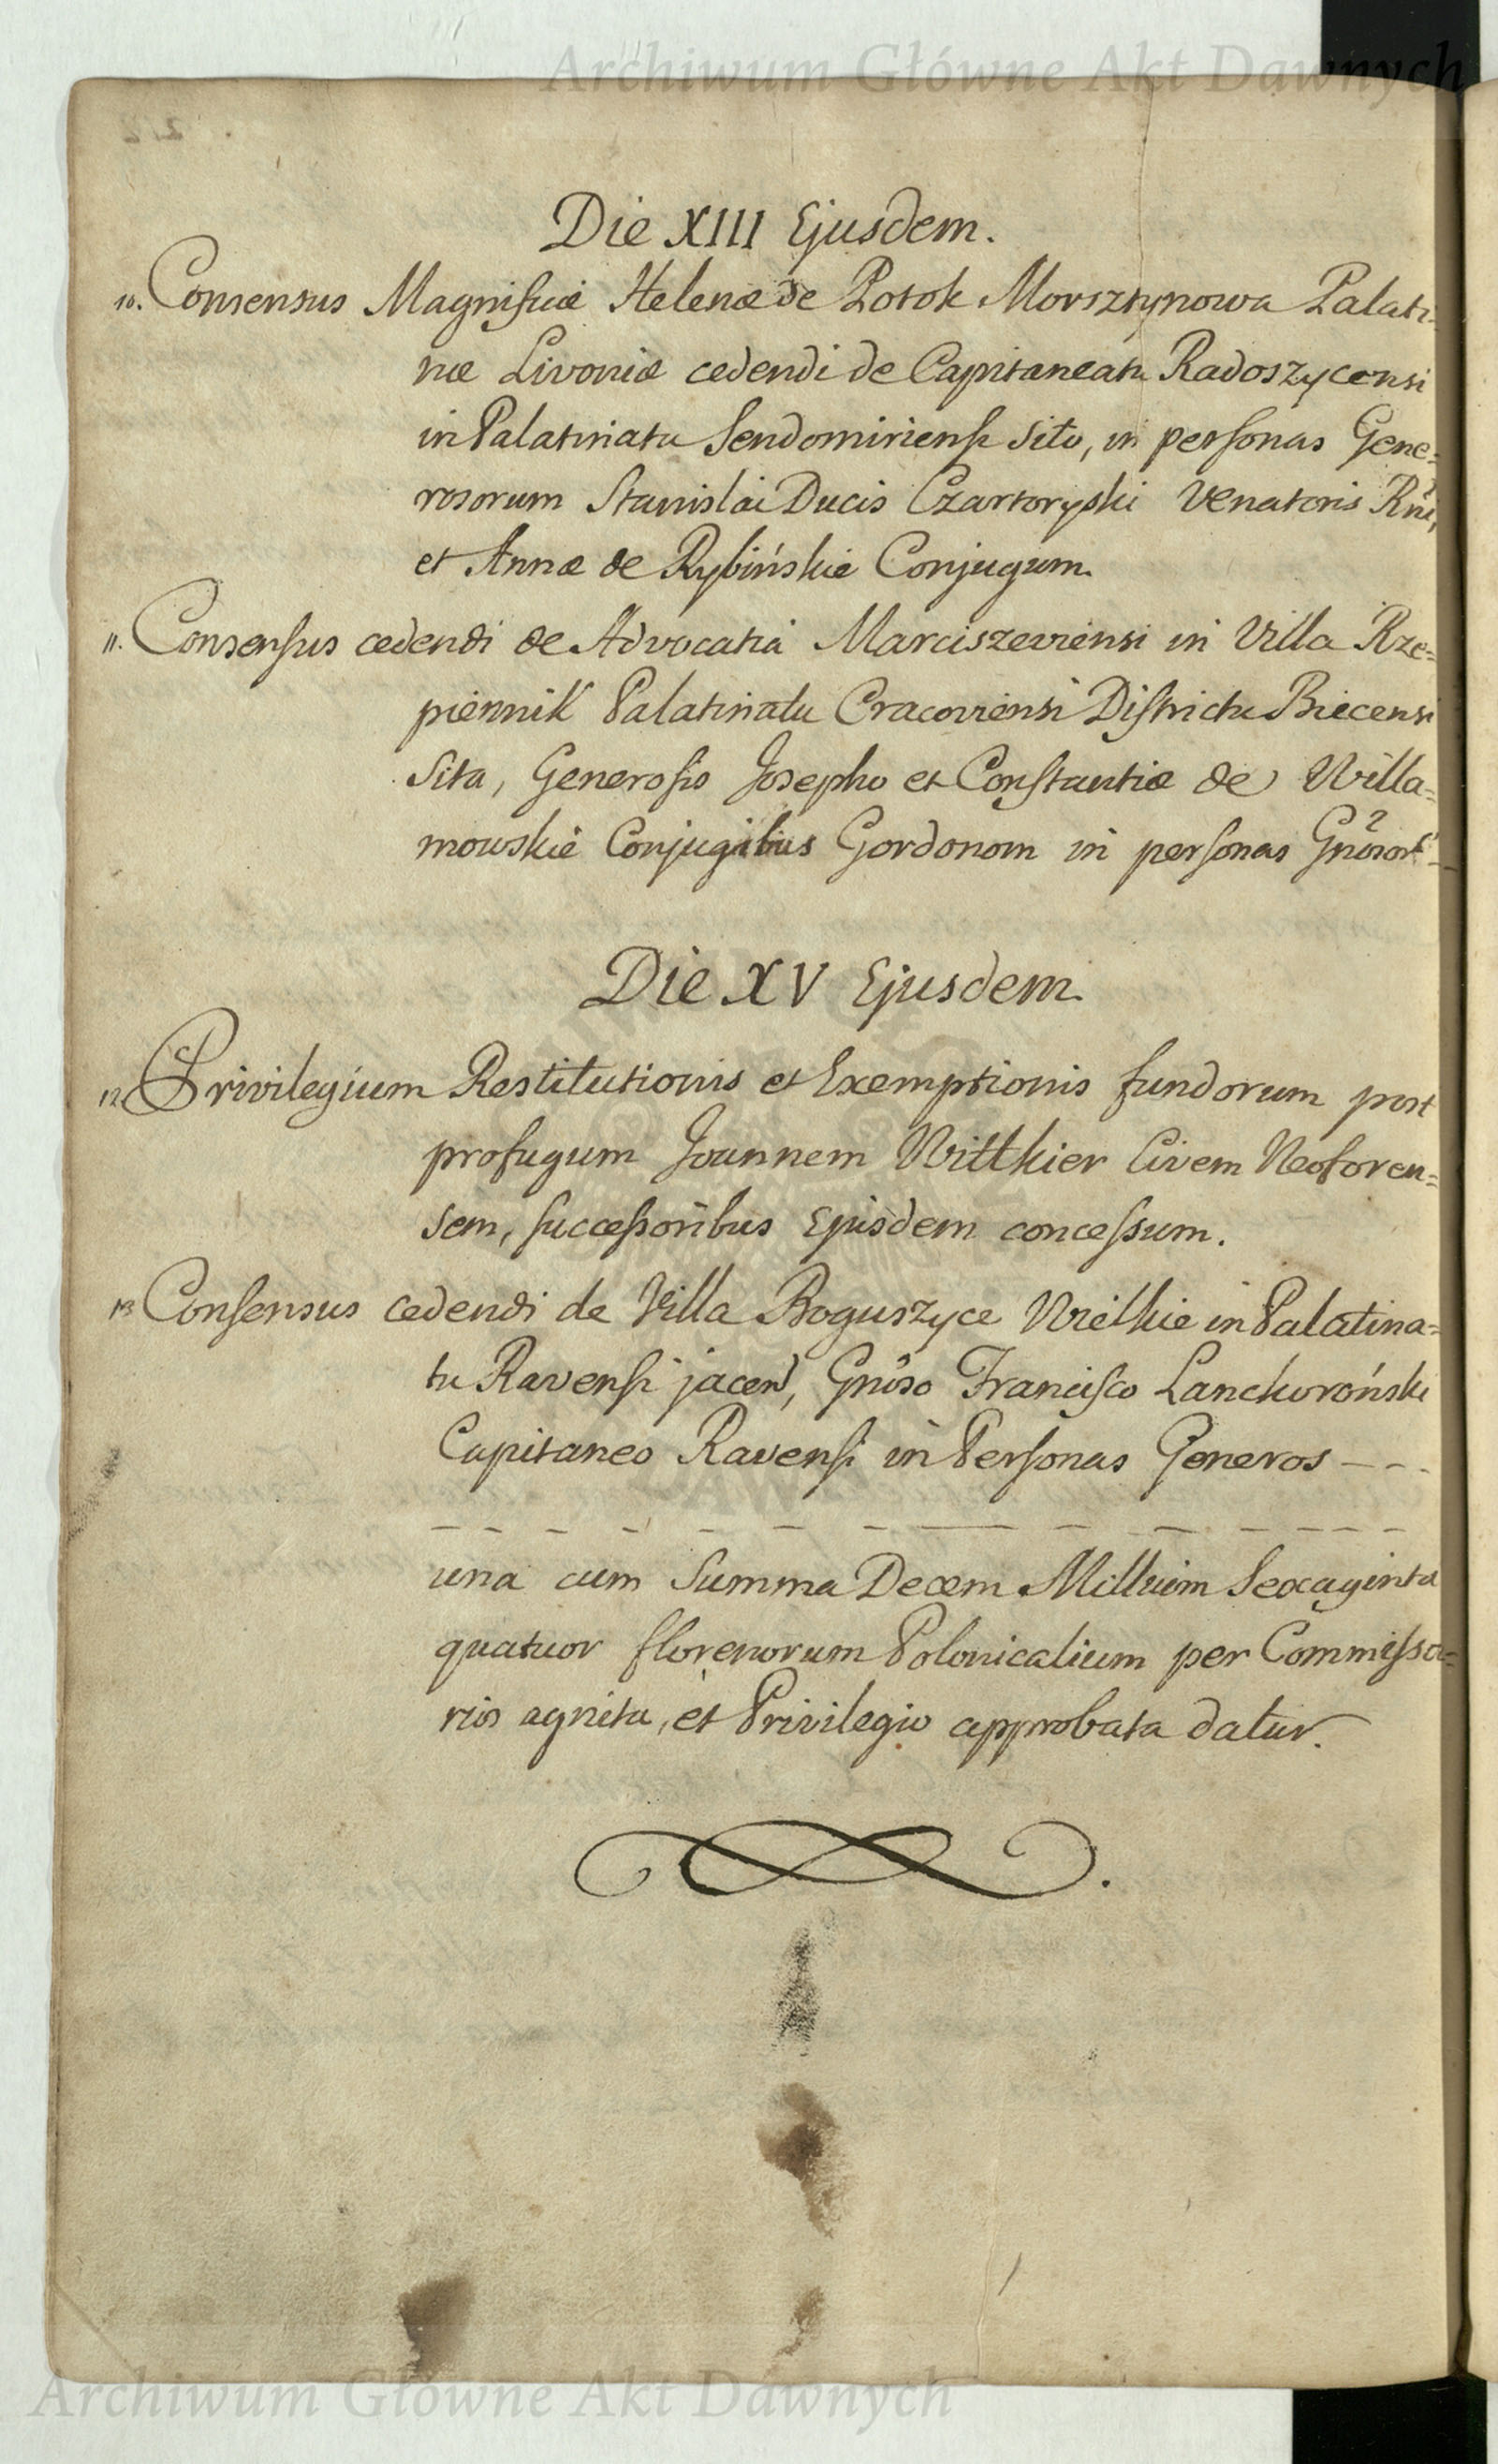 Archiwum Główne Akt Dawnych
Die XIII Ejusdem.
10. Consensus Magnificæ Helenæ de Potok Morsztynowa Palati=
næ Livoniæ cedendi de Capitaneatu Radoszycensi
in Palatinatu Sendomiriensi sito, in personas Gene=
rosorum Stanislai Ducis Czartoryski Venatoris Rni,
et Annæ de Rybińskie Conjugum.
11. Consensus cedendi de Advocatia Marciszeviensi in Villa Rze=
piennik Palatinatu Cracoviensi Districtu Biecensi
Sita, Generosis Josepho et Constantiæ de Willa=
mowskie Conjugibus Gordonom in personas Gnosor
Die XV Ejusdem.
12. Privilegium Restitutionis et Exemptionis fundorum post
profugum Joannem Wittkier Civem Neoforen=
sem, successoribus Ejusdem concessum.
13 Consensus cedendi de Villa Boguszyce Wielkie in Palatina=
tu Ravensi jacen, Gnoso Francisco Lanckoroński
Capitaneo Ravensi in Personas Generos - - -
una cum Summa Decem Millium Sexaginta
quatuor florenorum Polonicalium per Commissa=
rios agnita, et Privilegio approbata datur.
Archiwum Główne Akt Dawnych